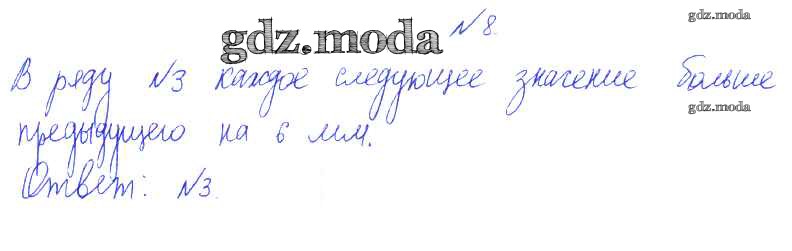 gdz.moda
gdz.moda №8.
В ряду №3 каждое следующее значение больше
gdz.moda
предыдущего на 6 мм.
Ответ: №3.